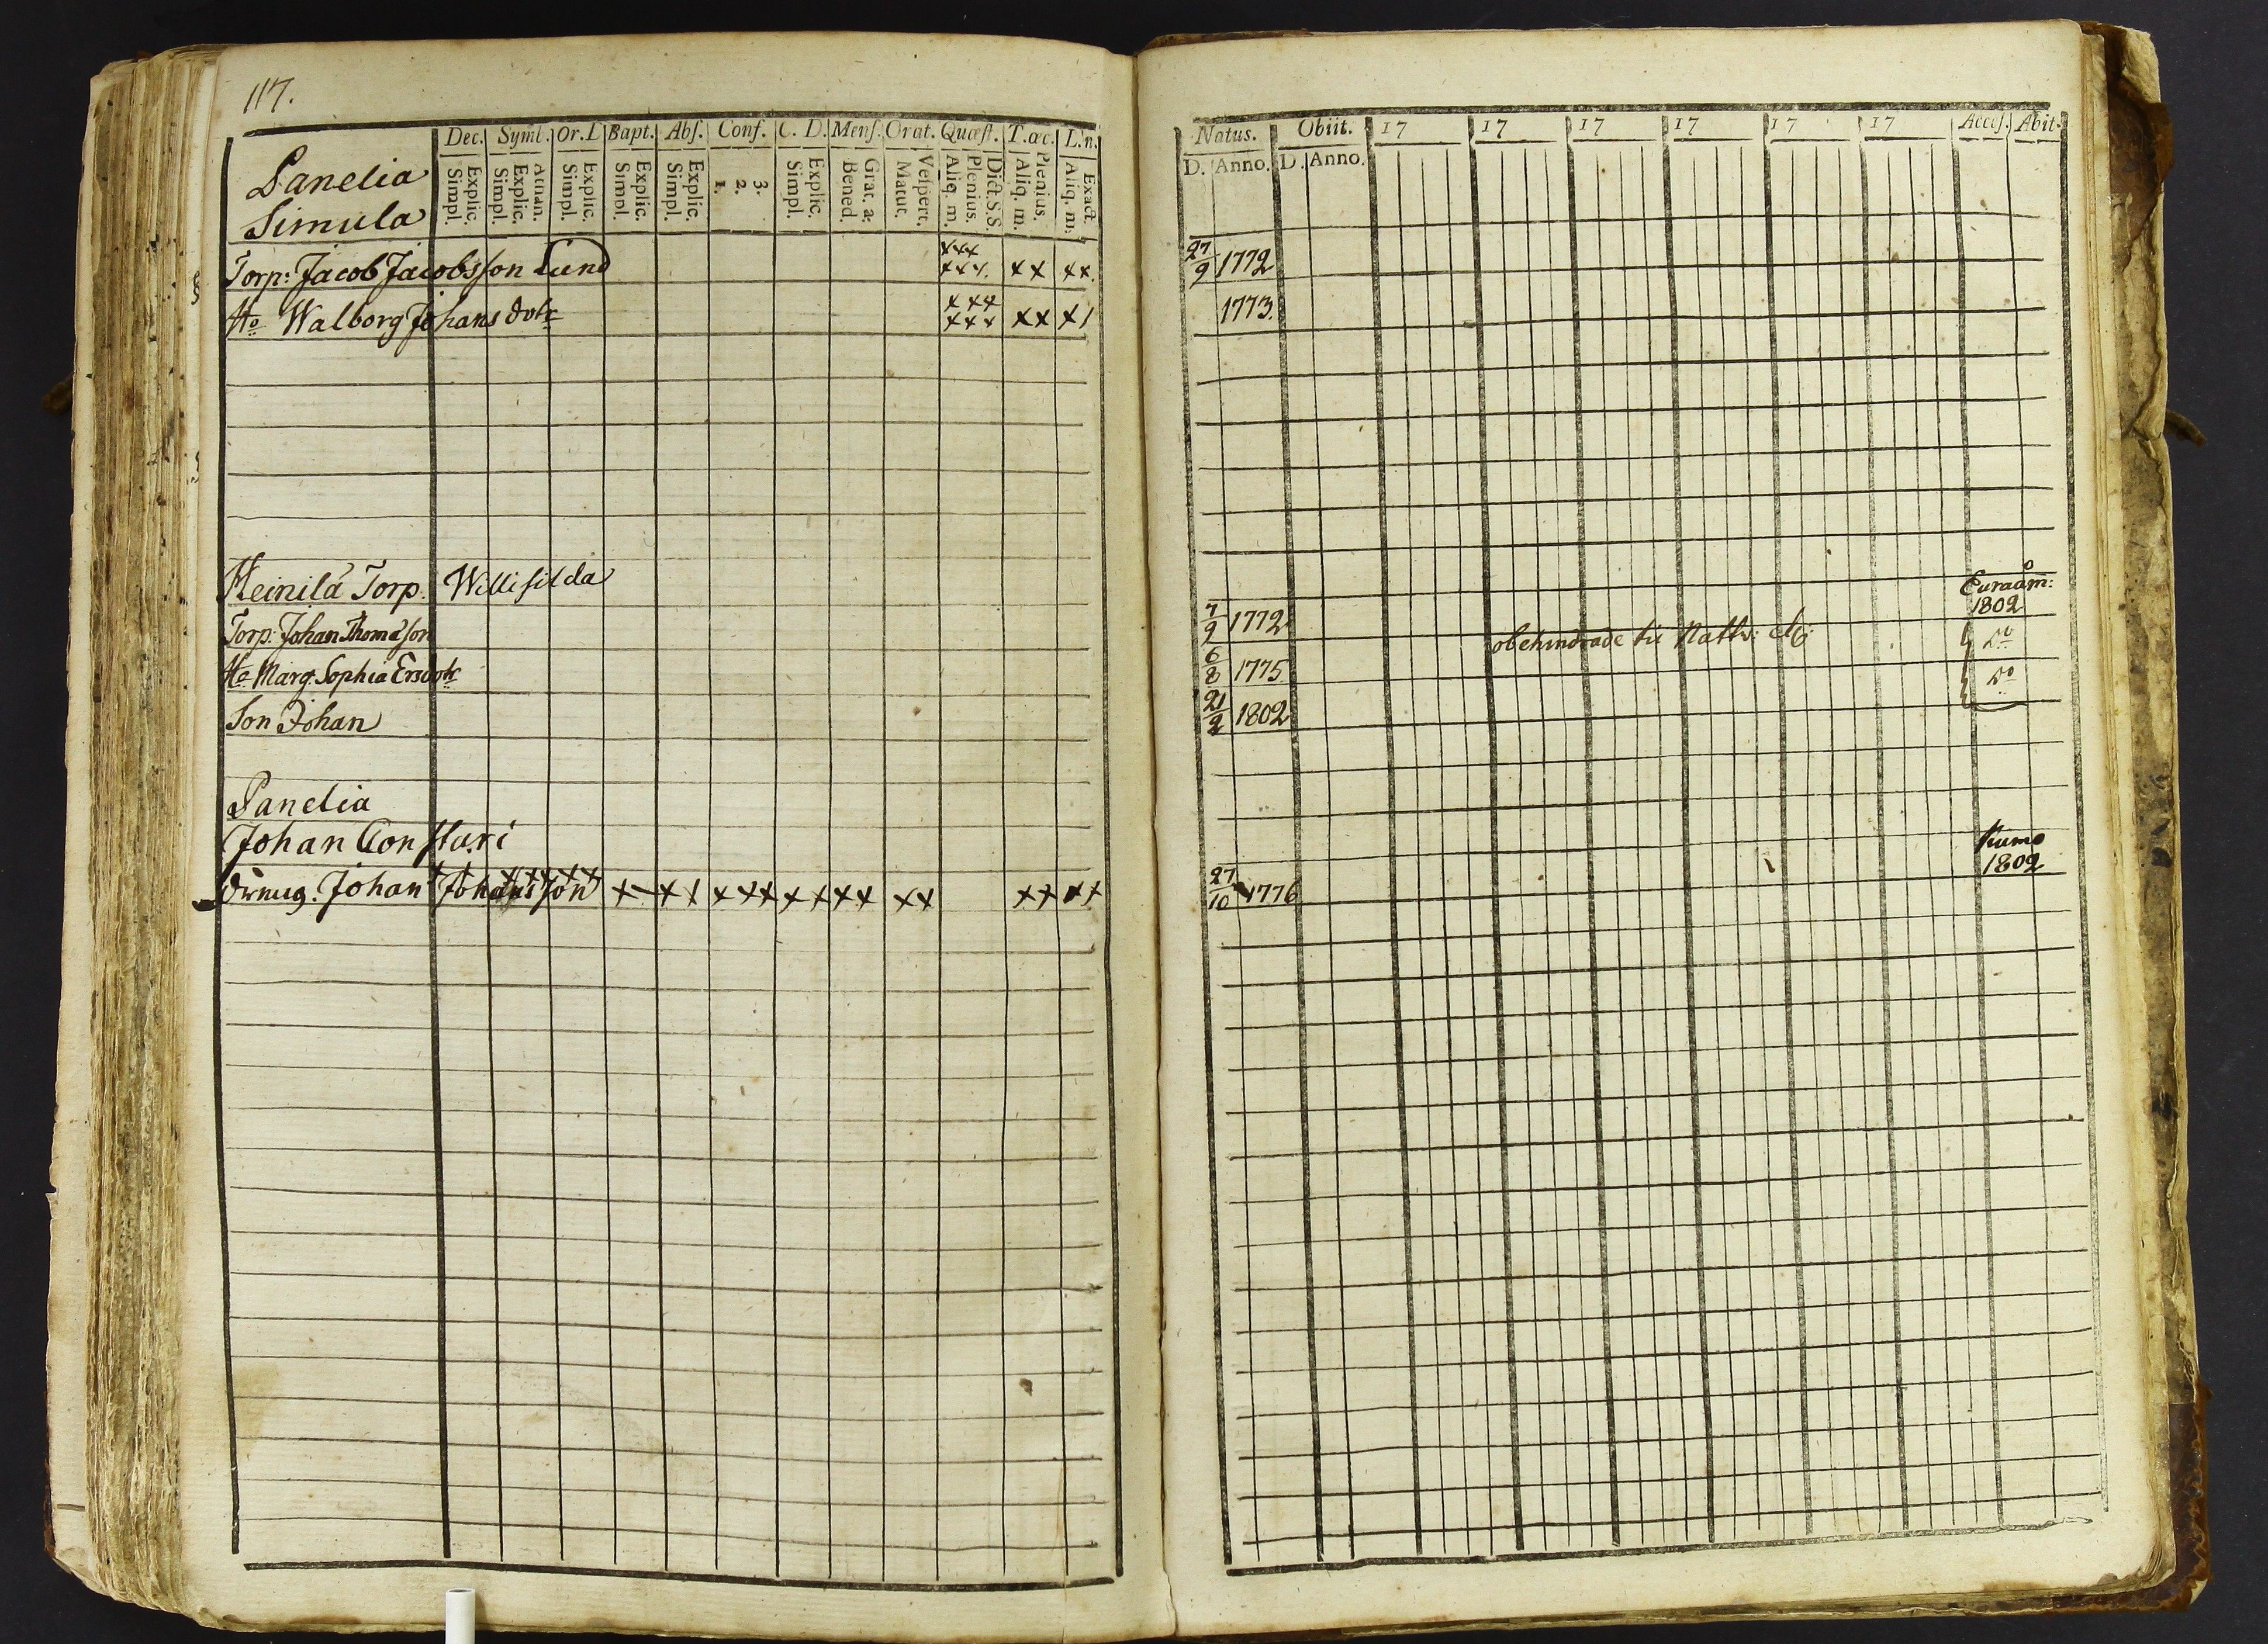 117.
Dec. Symb. Or.D Bapt. Abſ. Conf. C. D. Menſ. Orat. Quæſt. T.œc. L.n.
Explic. Simpl. Athan. Explic. Simpl. Explic. Simpl. Explic. Simpl. Explic. Simpl. 3. 2. 1. Explic. Simpl. Grat. a. Bened. Veſpert. Matut. Dict.S.S. Plenius. Aliq. m. Plenius. Aliq. m. Exact. Aliq. m.
Panelia
Simula
Torp: Jacob Jacobsson Lund xxx xxx. xx xx.
Ho Walborg Johans dotr xxx xxx xx x/
Heinilä Torp. Willisilda
Torp: Johan Thomasson
Ho Marg. Sophia Ersdotr
Son Johan
Panelia
Johan Constari
Johan Johansson
Natus. Obiit. 17 17 17 17 17 17 Acceſ. Abit.
D. Anno. D. Anno.
27/9 1772
1773.
Euraåm:
1802
7/9 1772 obehindrade til Nattv:
do
6/8 1775
do
21/2 1802
Kumo
1802
27/10 1776